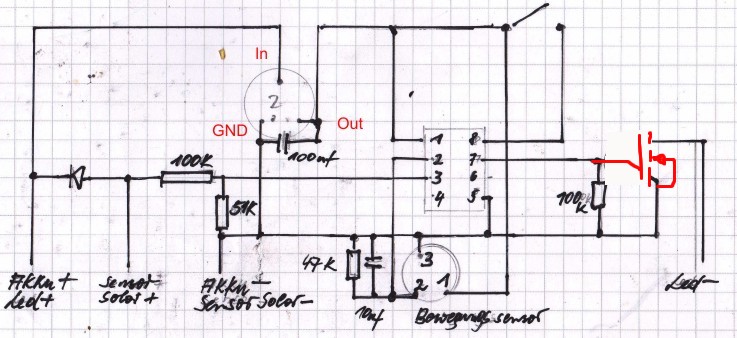 In
2
GND
Out
100nf
100K
51K
1
2
3
4
8
7
6
5
100
k
47K
10nf
3
2
1
Bewegungssensor
AKKu+
Led+
Sensor
Solar+
AKKu-
Sensor Solar-
Led-